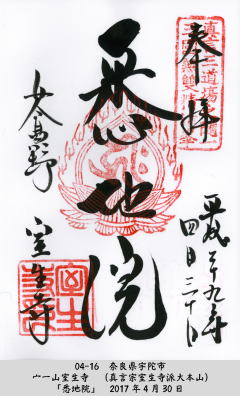 奉拝
悉地院
平成二十九年
四月三十日
女人高野
室生寺
04-16 奈良県宇陀市
宀一山室生寺 (真言宗室生寺派大本山)
「悉地院」 2017年4月30日